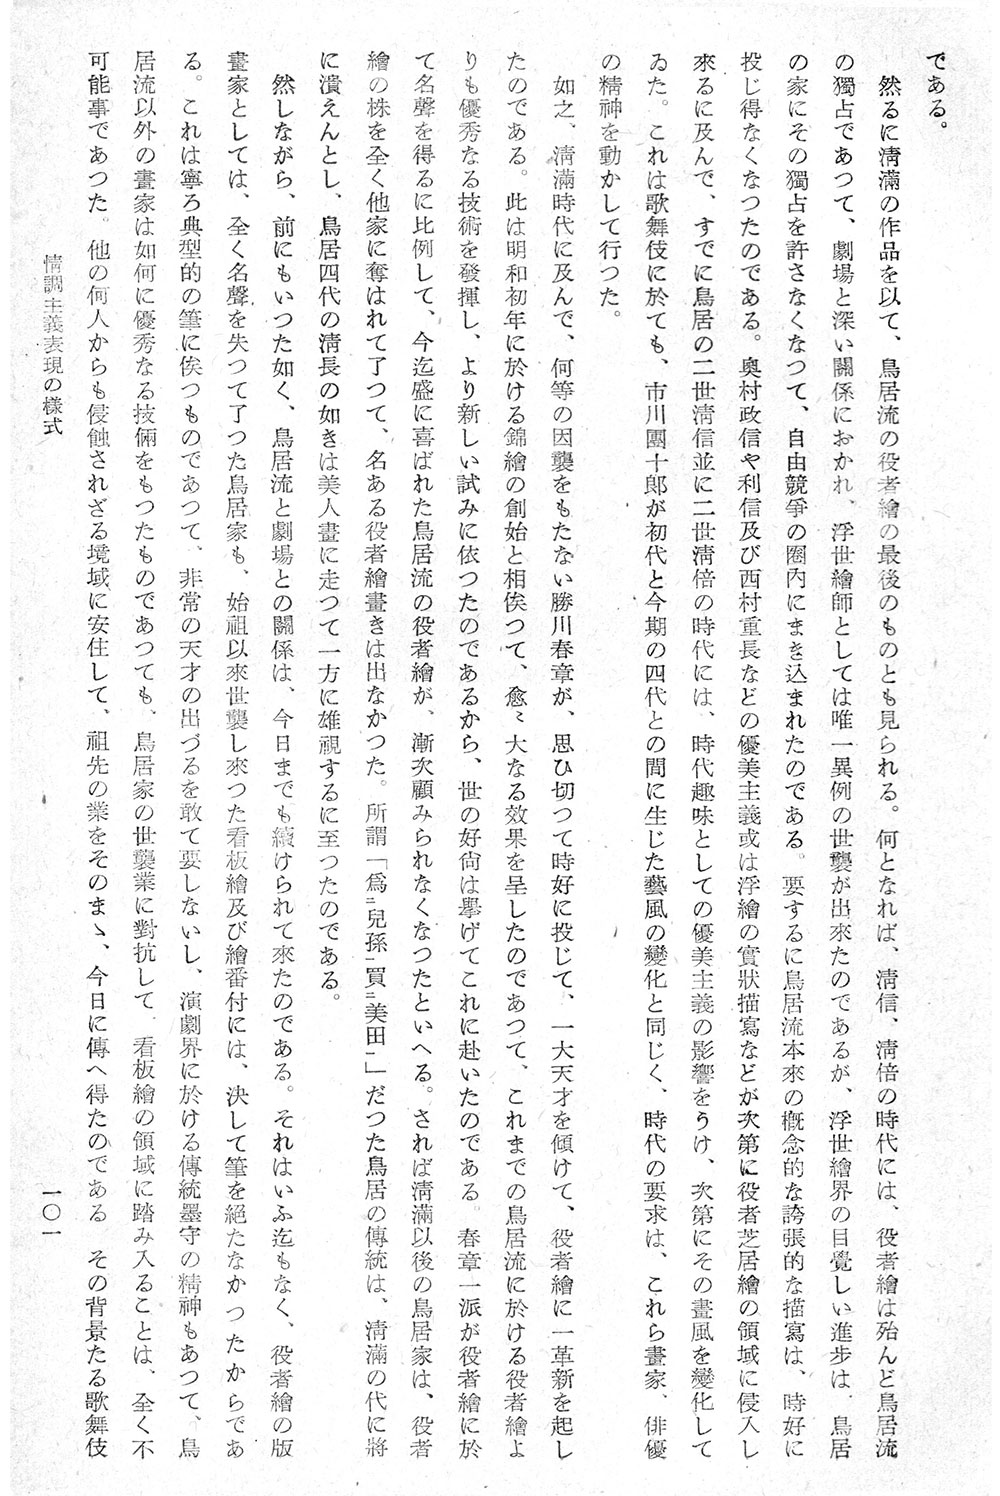 である。
然るに淸滿の作品を以て、鳥居流の役者繪の最後のものとも見られる。何となれば、淸信、淸倍の時代には、役者繪は殆んど鳥居流
の獨占であつて、劇場と深い關係におかれ、浮世繪師としては唯一異例の世襲が出來たのであるが、浮世繪界の目覺しい進步は、鳥居
の家にその獨占を許さなくなつて、自由競爭の圈內にまき込まれたのである。要するに鳥居流本來の概念的な誇張的な描寫は、時好に
投じ得なくなつたのである。奧村政信や利信及び西村重長などの優美主義或は浮繪の實狀描寫などが次第に役者芝居繪の領域に侵入し
來るに及んで、すでに鳥居の二世淸信並に二世淸倍の時代には、時代趣味としての優美主義の影響をうけ、次第にその畫風を變化して
ゐた。これは歌舞伎に於ても、市川團十郞が初代と今期の四代との間に生じた藝風の變化と同じく、時代の要求は、これら畫家、俳優
の精神を動かして行つた。
如之、淸滿時代に及んで、何等の因襲をもたない勝川春章が、思ひ切つて時好に投じて、一大天才を傾けて、役者繪に一革新を起し
たのである。此は明和初年に於ける錦繪の創始と相俟つて、愈〻大なる效果を呈したのであつて、これまでの鳥居流に於ける役者繪よ
りも優秀なる技術を發揮し、より新しい試みに依つたのであるから、世の好尙は擧げてこれに赴いたのである。春章一派が役者繪に於
て名聲を得るに比例して、今迄盛に喜ばれた鳥居流の役者繪が、漸次顧みられなくなつたといへる。されば淸滿以後の鳥居家は、役者
繪の株を全く他家に奪はれて了つて、名ある役者繪畫きは出なかつた。所謂「爲㆓兒孫㆒買㆓美田㆒」だつた鳥居の傳統は、淸滿の代に將
に潰えんとし、鳥居四代の淸長の如きは美人畫に走つて一方に雄視するに至つたのである。
然しながら、前にもいつた如く、鳥居流と劇場との關係は、今日までも續けられて來たのである。それはいふ迄もなく、役者繪の版
畫家としては、全く名聲を失つて了つた鳥居家も、始祖以來世襲し來つた看板繪及び繪番付には、決して筆を絕たなかつたからであ
る。これは寧ろ典型的の筆に俟つものであつて、非常の天才の出づるを敢て要しないし、演劇界に於ける傳統墨守の精神もあつて、鳥
居流以外の畫家は如何に優秀なる技倆をもつたものであつても、鳥居家の世襲業に對抗して、看板繪の領域に踏み入ることは、全く不
可能事であつた。他の何人からも侵蝕されざる境域に安住して、祖先の業をそのまゝ、今日に傳へ得たのである その背景たる歌舞伎
情調主義表現の樣式
一〇一